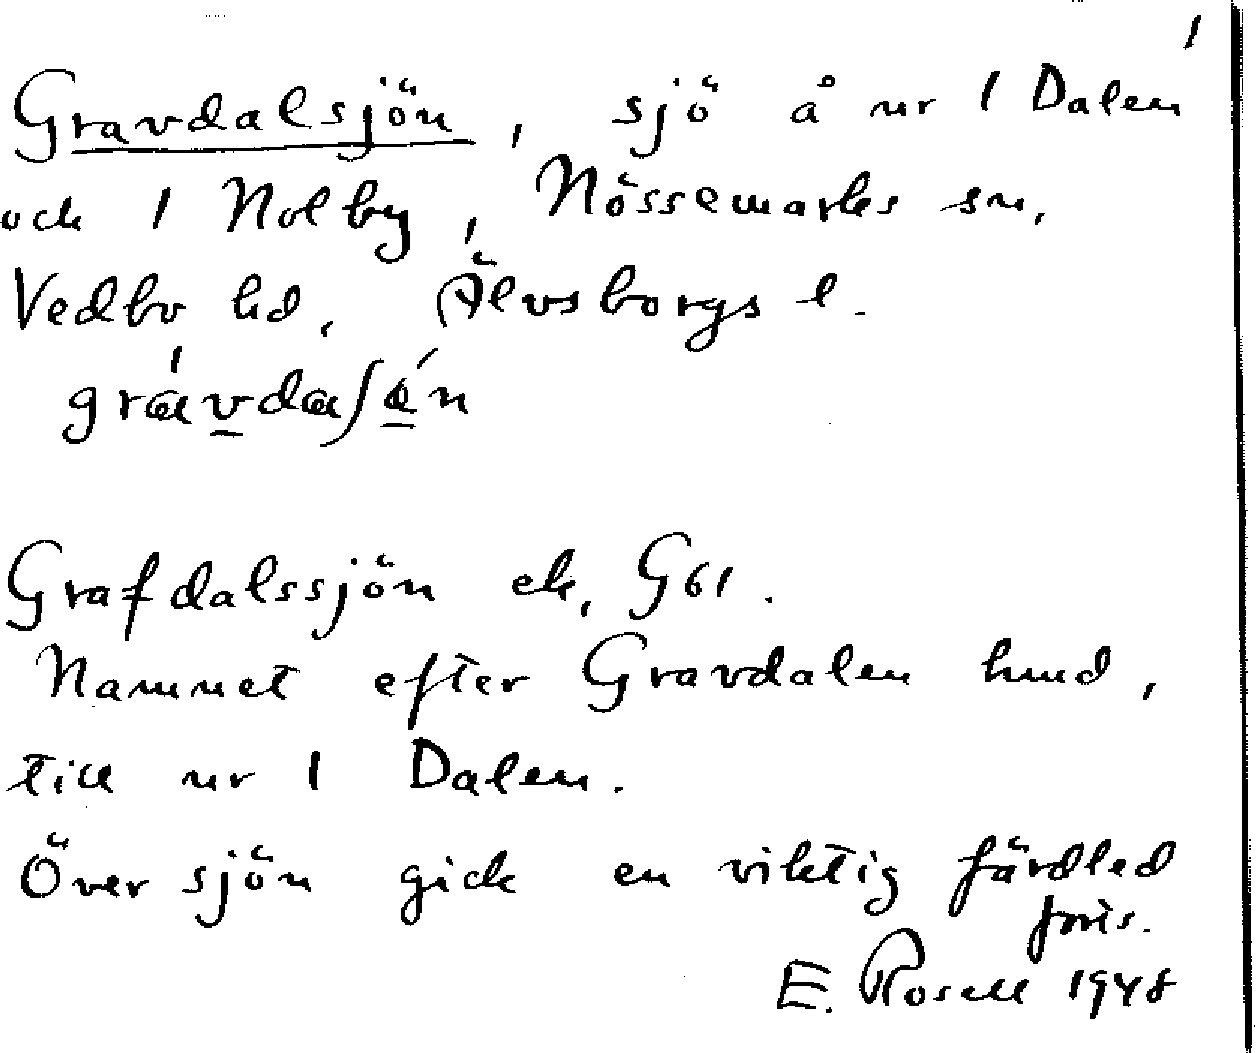 1
Gravdalsjön, sjö å nr 1 Dalen
och 1 Nolby, Nössemarks sn,
Vedbo hd, Älvsborgs l.
Grafdalssjön ek, G61.
Namnet efter Gravdalen hmd,
till nr 1 Dalen.
Över sjön gick en viktig färdled
forts.
E. Rosell 1948